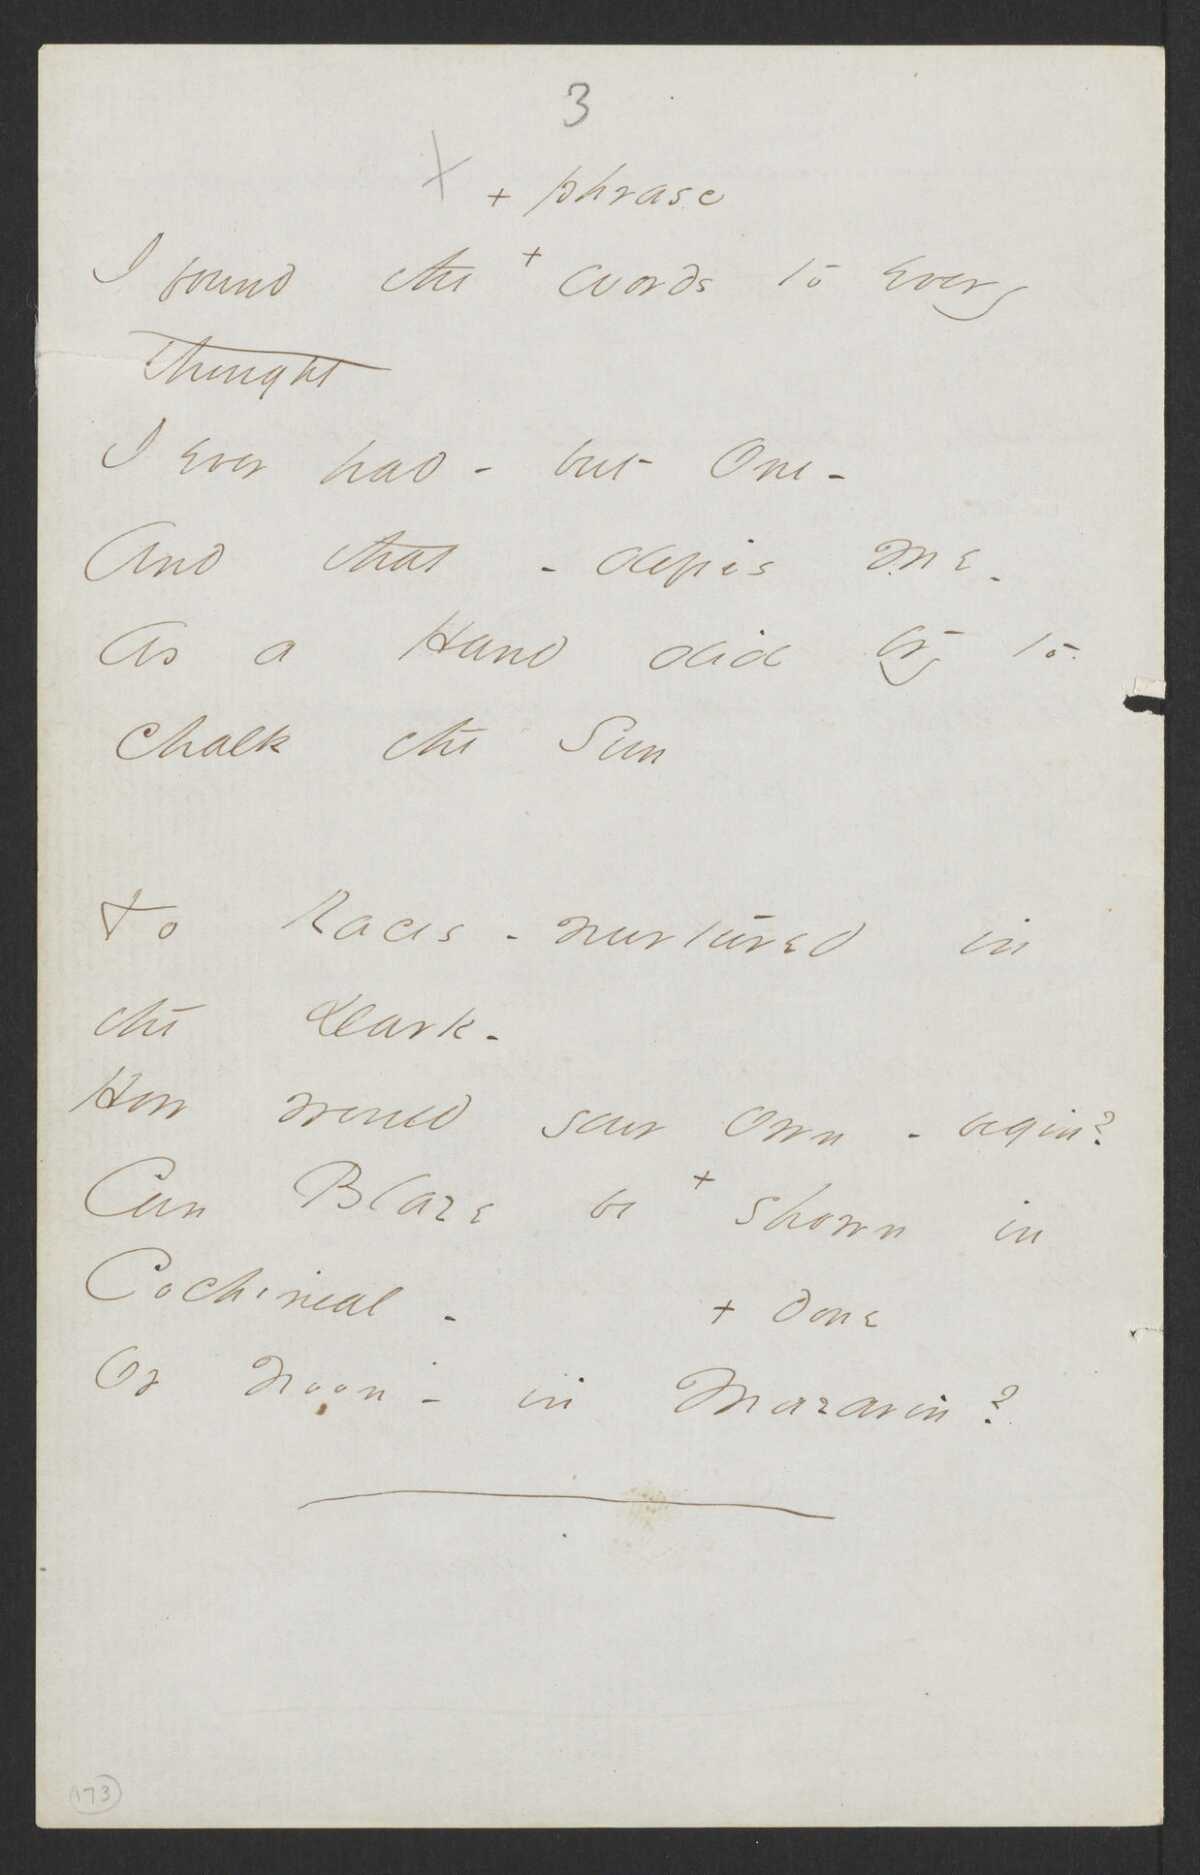 3
X + phrase
I found the + words to Every
thought
I Ever had - but One -
And that - defies Me -
As a Hand did try to
Chalk the Sun
To Races - nurtured in
the Dark -
How would your Own - begin?
Can Blaze be + shown in
Cochineal -
+ done
Or Noon - in Mazarin?
173